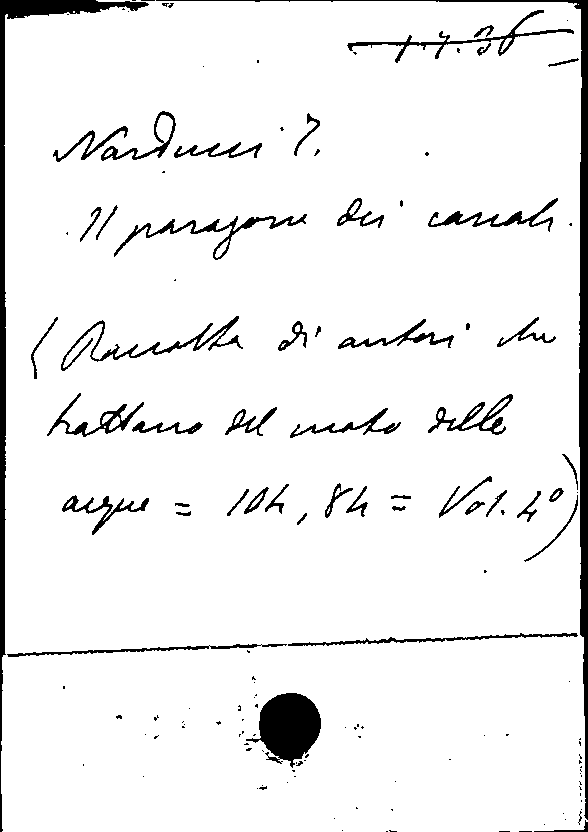 1.7.36
Narducci T.
Il paragone dei canali.
(Raccolta di autori che
trattano del moto delle
acque = 104, 84 = Vol. 4º)